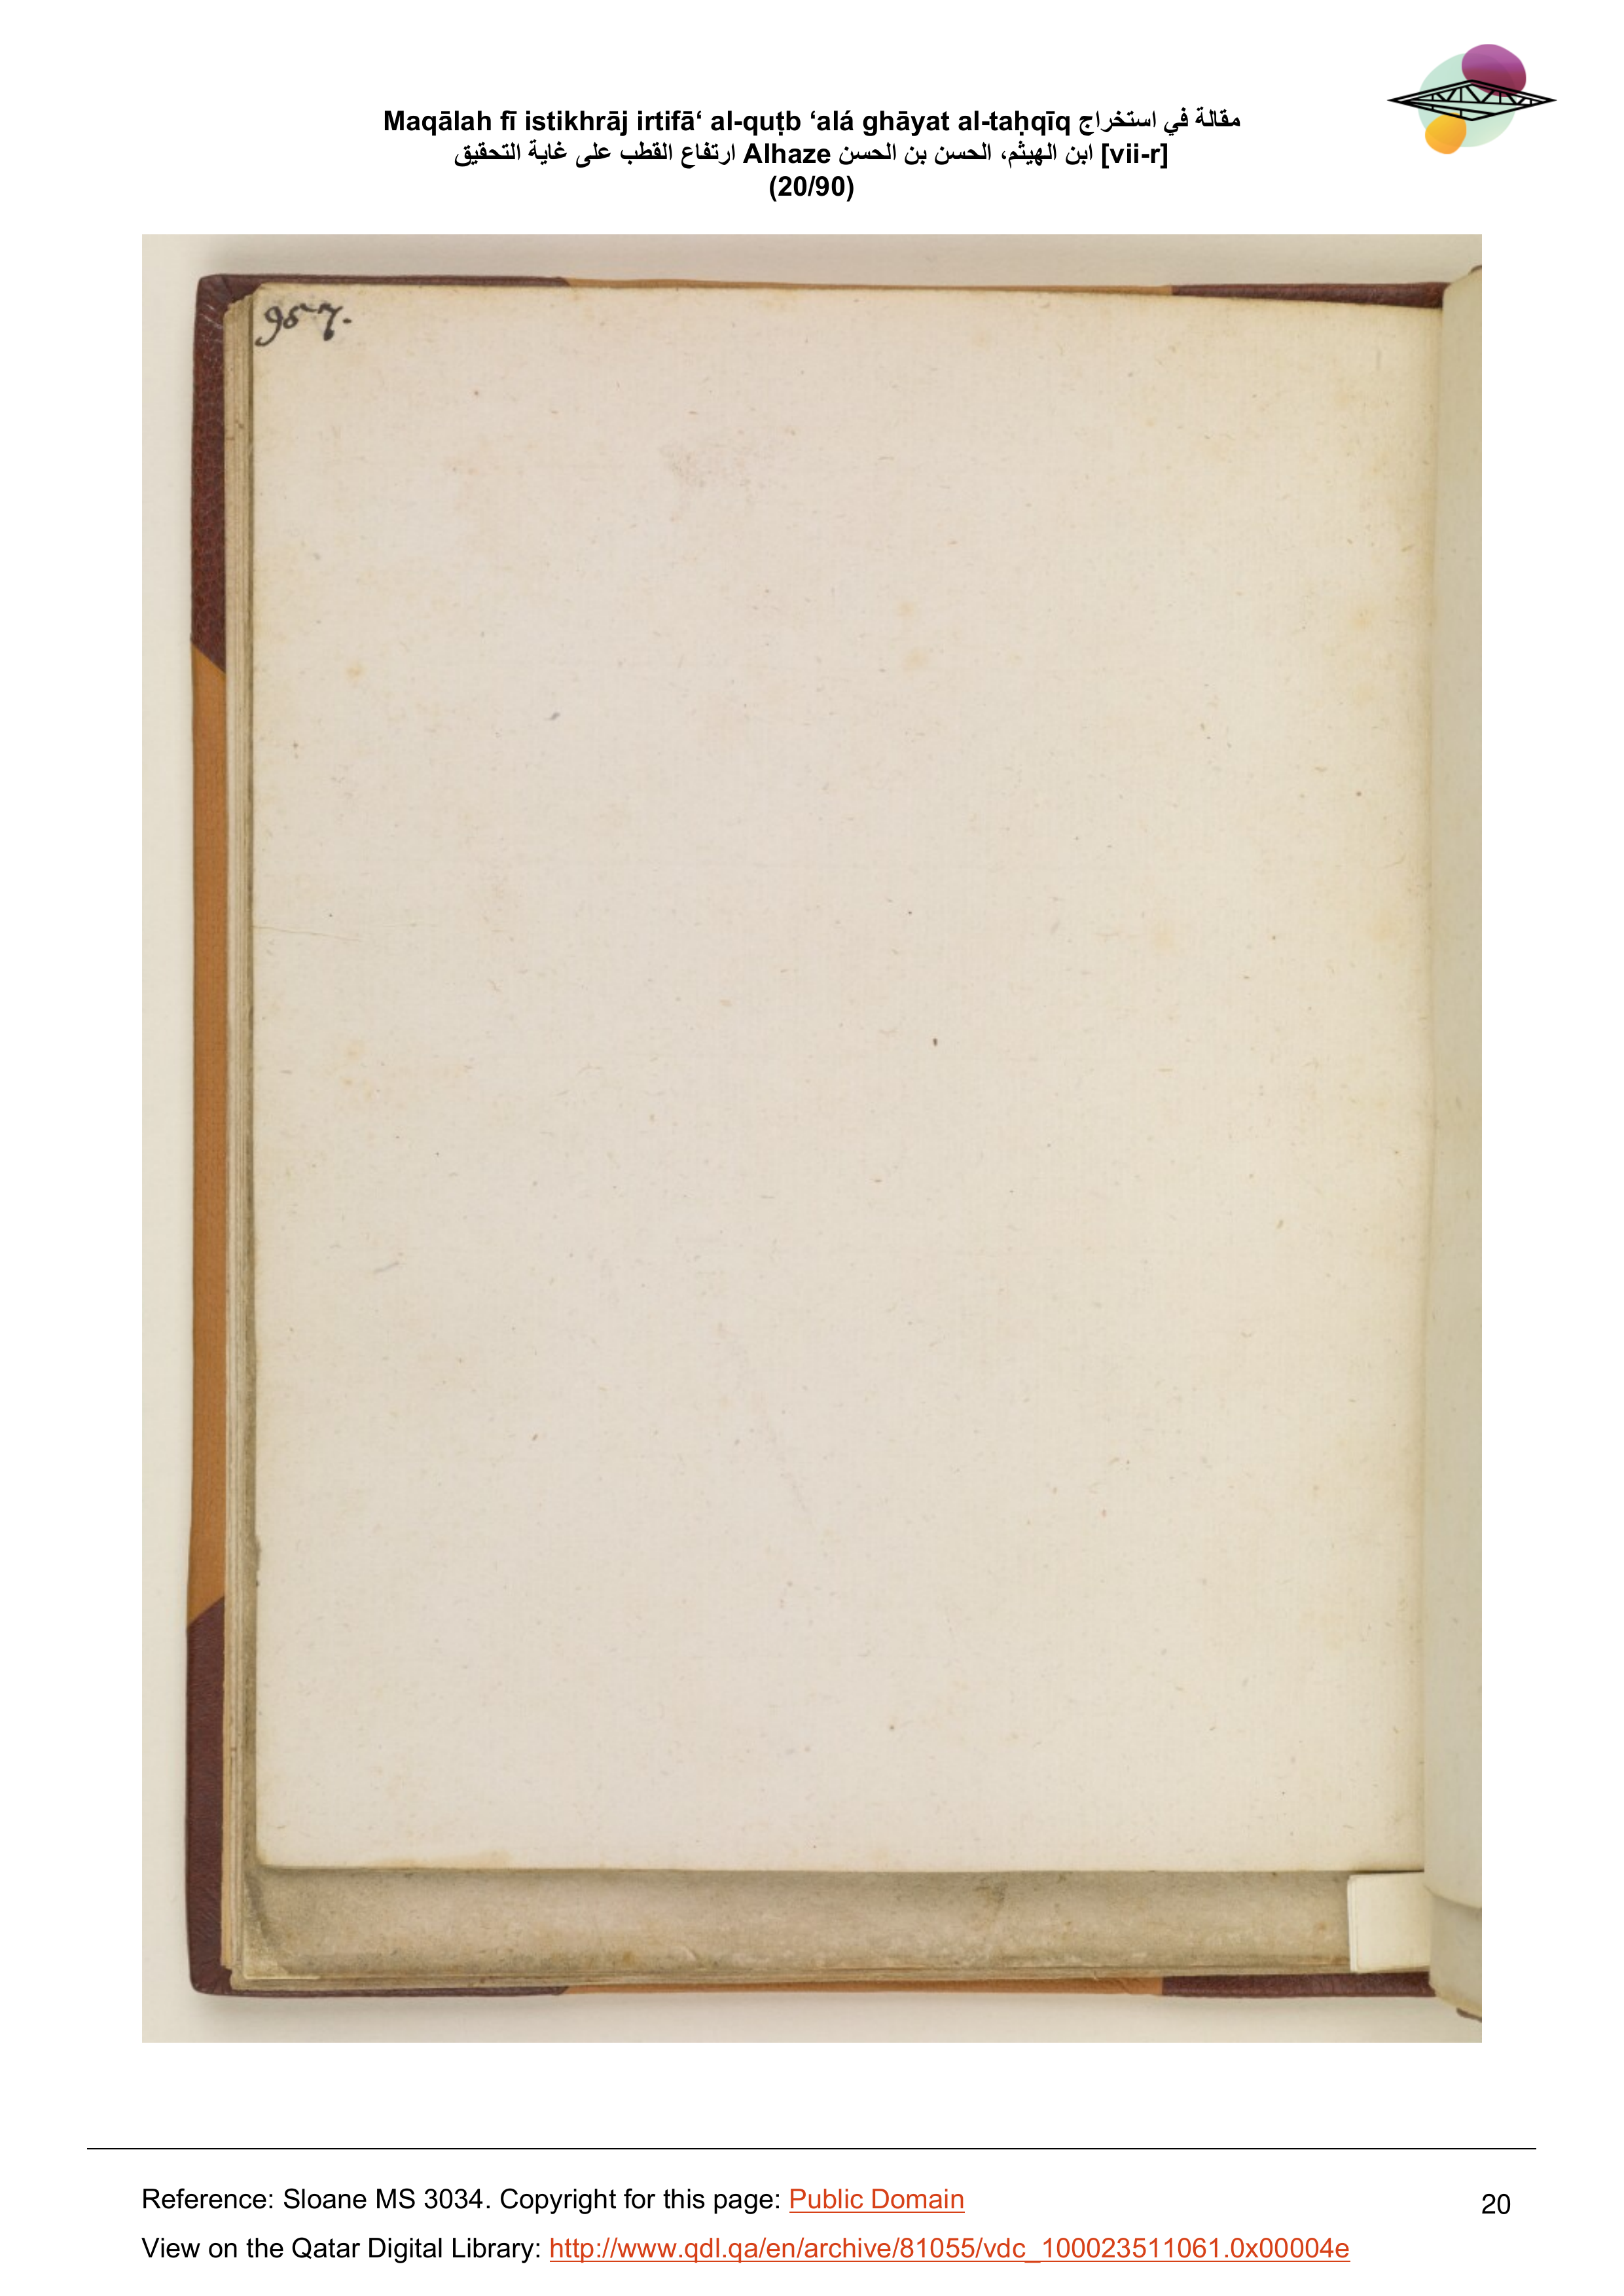 Maqālah fī istikhrāj irtifā‘ al-quṭb ‘alá ghāyat al-taḥqīq مقالة في استخراج
ارتفاع القطب على غاية التحقيق Alhaze ابن الهيثم، الحسن بن الحسن [vii-r]
(20/90)
957.
Reference: Sloane MS 3034. Copyright for this page: Public Domain
20
View on the Qatar Digital Library: http://www.qdl.qa/en/archive/81055/vdc_100023511061.0x00004e